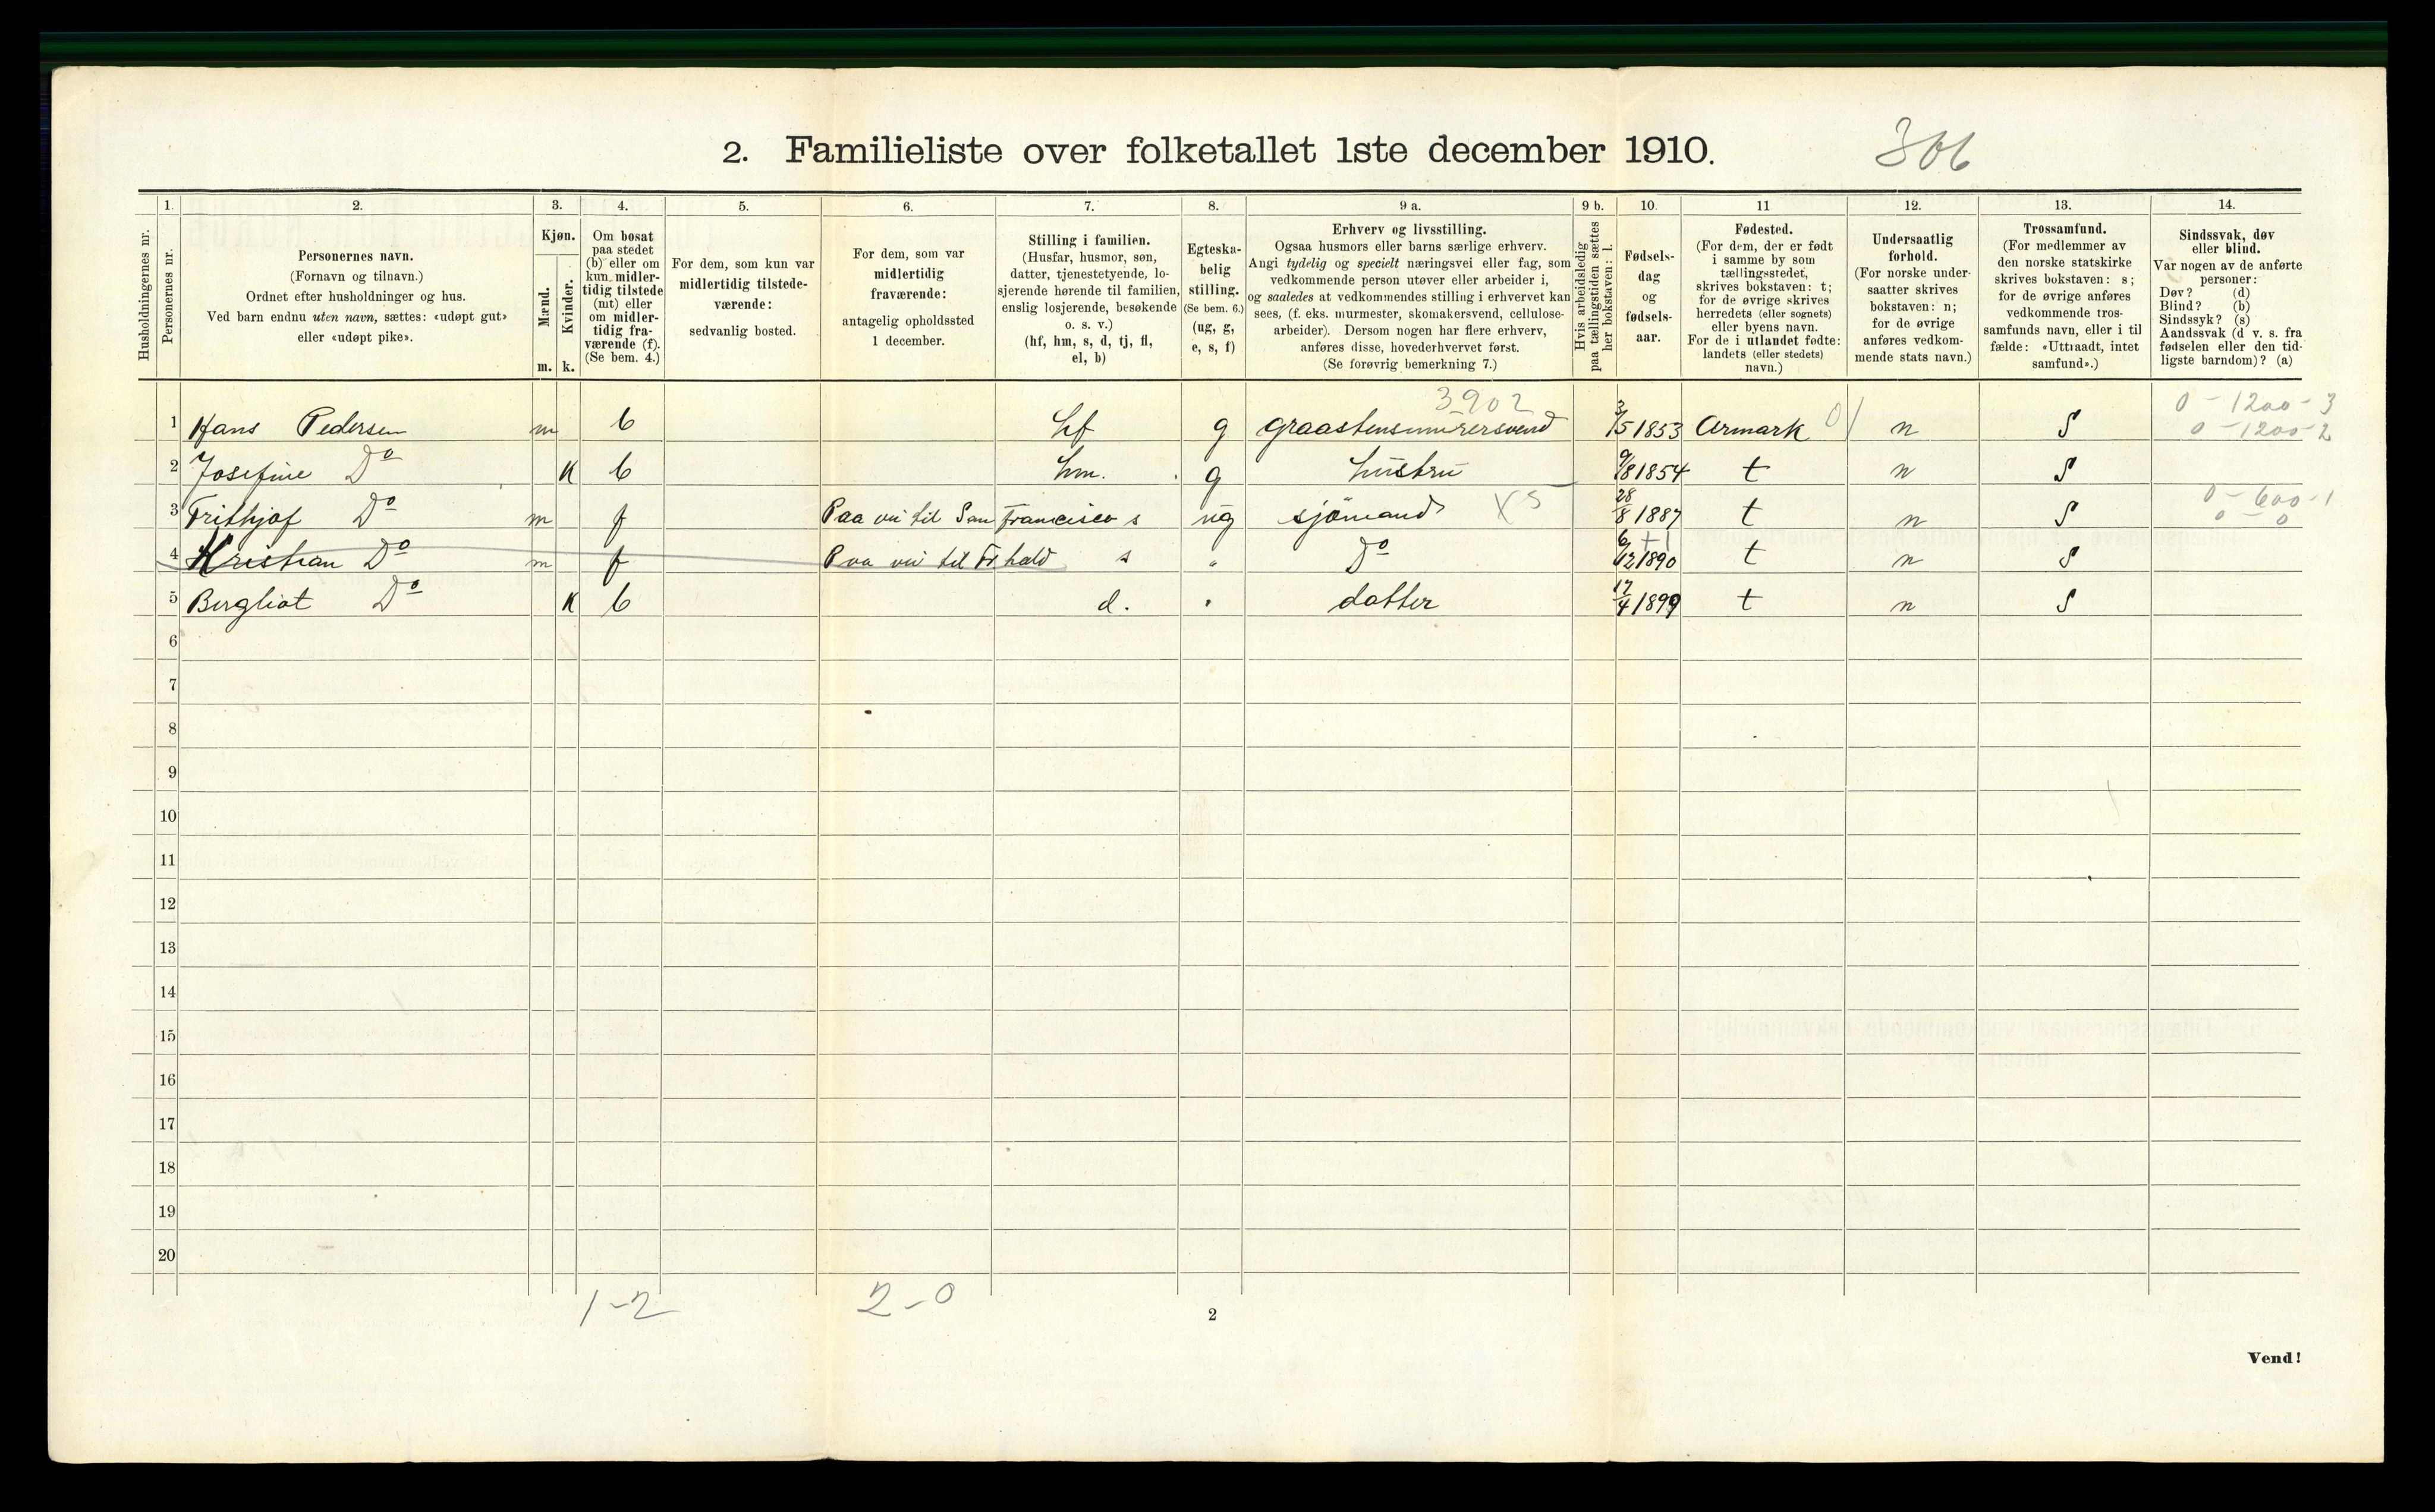 2. Familieliste over folketallet 1ste december 1910. 306
1. 2. 3. 4. 5. 6. 7. 8. 9 a. 9 b. 10. 11 12. 13. 14.
Husholdningernes nr.
Personernes nr.
Personernes navn.
(Fornavn og tilnavn.)
Ordnet efter husholdninger og hus.
Ved barn endnu uten navn, sættes: «udøpt gut»
eller «udøpt pike».
Kjøn.
Mænd.
Kvinder.
m. k.
Om bosat
paa stedet
(b) eller om
kun midler-
tidig tilstede
(mt) eller
om midler-
tidig fra-
værende (f).
(Se bem. 4.)
For dem, som kun var
midlertidig tilstede-
værende:
sedvanlig bosted.
For dem, som var
midlertidig
fraværende:
antagelig opholdssted
1 december.
Stilling i familien.
(Husfar, husmor, søn,
datter, tjenestetyende, lo-
sjerende hørende til familien,
enslig losjerende, besøkende
o. s. v.)
(hf, hm, s, d, tj, fl,
el, b)
Egteska-
belig
stilling.
(Se bem. 6.)
(ug, g,
e, s, f)
Erhverv og livsstilling.
Ogsaa husmors eller barns særlige erhverv.
Angi tydelig og specielt næringsvei eller fag, som
vedkommende person utøver eller arbeider i,
og saaledes at vedkommendes stilling i erhvervet kan
sees, (f. eks. murmester, skomakersvend, cellulose-
arbeider). Dersom nogen har flere erhverv,
anføres disse, hovederhvervet først.
(Se forøvrig bemerkning 7.)
Hvis arbeidsledig
paa tællingstiden sættes
her bokstaven: l.
Fødsels-
dag
og
fødsels-
aar.
Fødested.
(For dem, der er født
i samme by som
tællingsstedet,
skrives bokstaven: t;
for de øvrige skrives
herredets (eller sognets)
eller byens navn.
For de i utlandet fødte:
landets (eller stedets)
navn.)
Undersaatlig
forhold.
(For norske under-
saatter skrives
bokstaven: n;
for de øvrige
anføres vedkom-
mende stats navn.)
Trossamfund.
(For medlemmer av
den norske statskirke
skrives bokstaven: s;
for de øvrige anføres
vedkommende tros-
samfunds navn, eller i til
fælde: «Uttraadt, intet
samfund».)
Sindssvak, døv
eller blind.
Var nogen av de anførte
personer:
Døv? (d)
Blind? (b)
Sindssyk? (s)
Aandssvak (d v. s. fra
fødselen eller den tid-
ligste barndom)? (a)
3902 0 - 1200 - 3
1 Hans Pedersen m b hf g graastensmurersvend 3/5 1853 Ørmark 01 n S 0 - 1200 - 2
2 Josefine Do K b hm. g hustru 9/8 1854 t n S
3 Frithjof Do m f Paa vei til San Francisco s ug sjömand X5 28/8 1887 t n S 0 - 600 - 1
0 - 0
4 Kristian Do m f Paa vei til Fr.hald s " Do 6/12 1890 t n S
5 Bergliot Do K b d. " datter 17/4 1899 t n S
6
7
8
9
10
11
12
13
14
15
16
17
18
19
20
1-2 2-0
2
Vend!